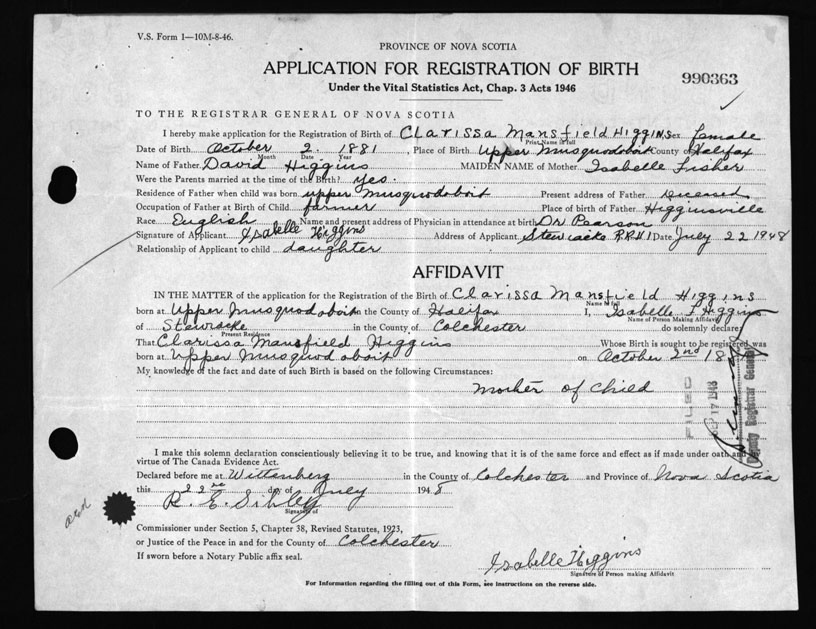 V.S. Form 1—10M-8-46.
PROVINCE OF NOVA SCOTIA
APPLICATION FOR REGISTRATION OF BIRTH
990363
Under the Vital Statistics Act, Chap. 3 Acts 1946
TO THE REGISTRAR GENERAL OF NOVA SCOTIA
I hereby make application for the Registration of Birth of Clarissa Mansfield Higgins Sex female
Print Name in full
Date of Birth October 2. 1881, Place of Birth Upper Musquodoboit County of Halifax
Month Date Year
Name of Father David Higgins MAIDEN NAME of Mother Isabelle Fisher
Were the Parents married at the time of the Birth? yes.
Residence of Father when child was born upper musquodoboit Present address of Father Deceased
Occupation of Father at Birth of Child farmer Place of birth of Father Higginsville
Race English Name and present address of Physician in attendance at birth Dr Pearson
Signature of Applicant Isabelle Higgins Address of Applicant Stewiacke R.R.#1 Date July 22 1948
Relationship of Applicant to child daughter
AFFIDAVIT
IN THE MATTER of the application for the Registration of the Birth of Clarissa Mansfield Higgins
Name in full
born at Upper Musquodoboit in the County of Halifax I, Isabelle F Higgins
Name of Person Making Affidavit
of Stewiacke in the County of Colchester do solemnly declare:
Present Residence
That Clarissa Mansfield Higgins Whose Birth is sought to be registered was
born at Upper Musquodoboit on October 2nd
My knowledge of the fact and date of such Birth is based on the following Circumstances:
Mother of Child
FILED
17 1948
Deputy Registrar General
I make this solemn declaration conscientiously believing it to be true, and knowing that it is of the same force and effect as if made under oath and
virtue of The Canada Evidence Act.
Declared before me at Wittenberg in the County of Colchester and Province of Nova Scotia
this 22nd day of July 1948
R. E. Sibley
Signature of
Commissioner under Section 5, Chapter 38, Revised Statutes, 1923,
or Justice of the Peace in and for the County of Colchester
If sworn before a Notary Public affix seal.
Isabelle Higgins
Signature of Person making Affidavit
For Information regarding the filling out of this Form, see instructions on the reverse side.